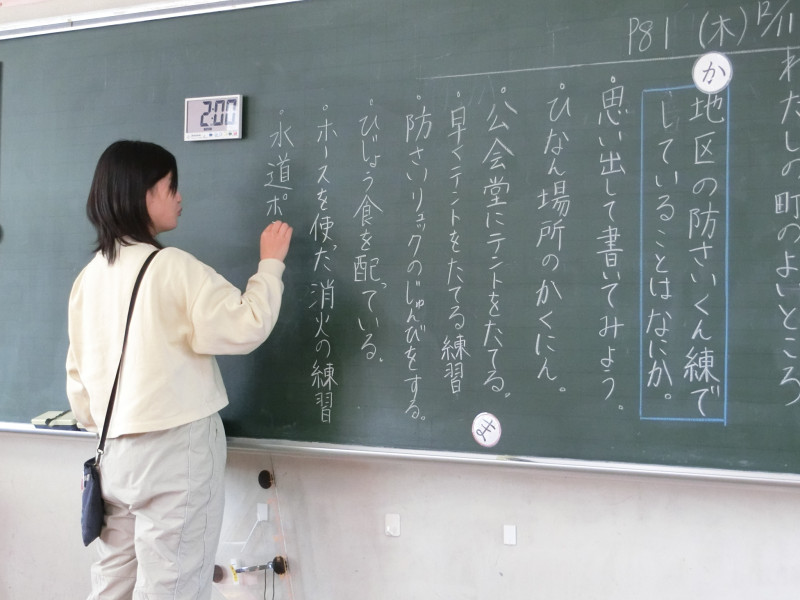 12/11(木) P81
わたしの町のよいところ
か
地区の防さいくん練で
していることはなにか。
・思い出して書いてみよう。
・ひなん場所のかくにん。
・公会堂にテントをたてる。
・早くテントをたてる練習
・防さいリュックのじゅんびをする。
・ひじょう食を配っている。
・ホースを使った消火の練習
・水道ポ
2:00
ま